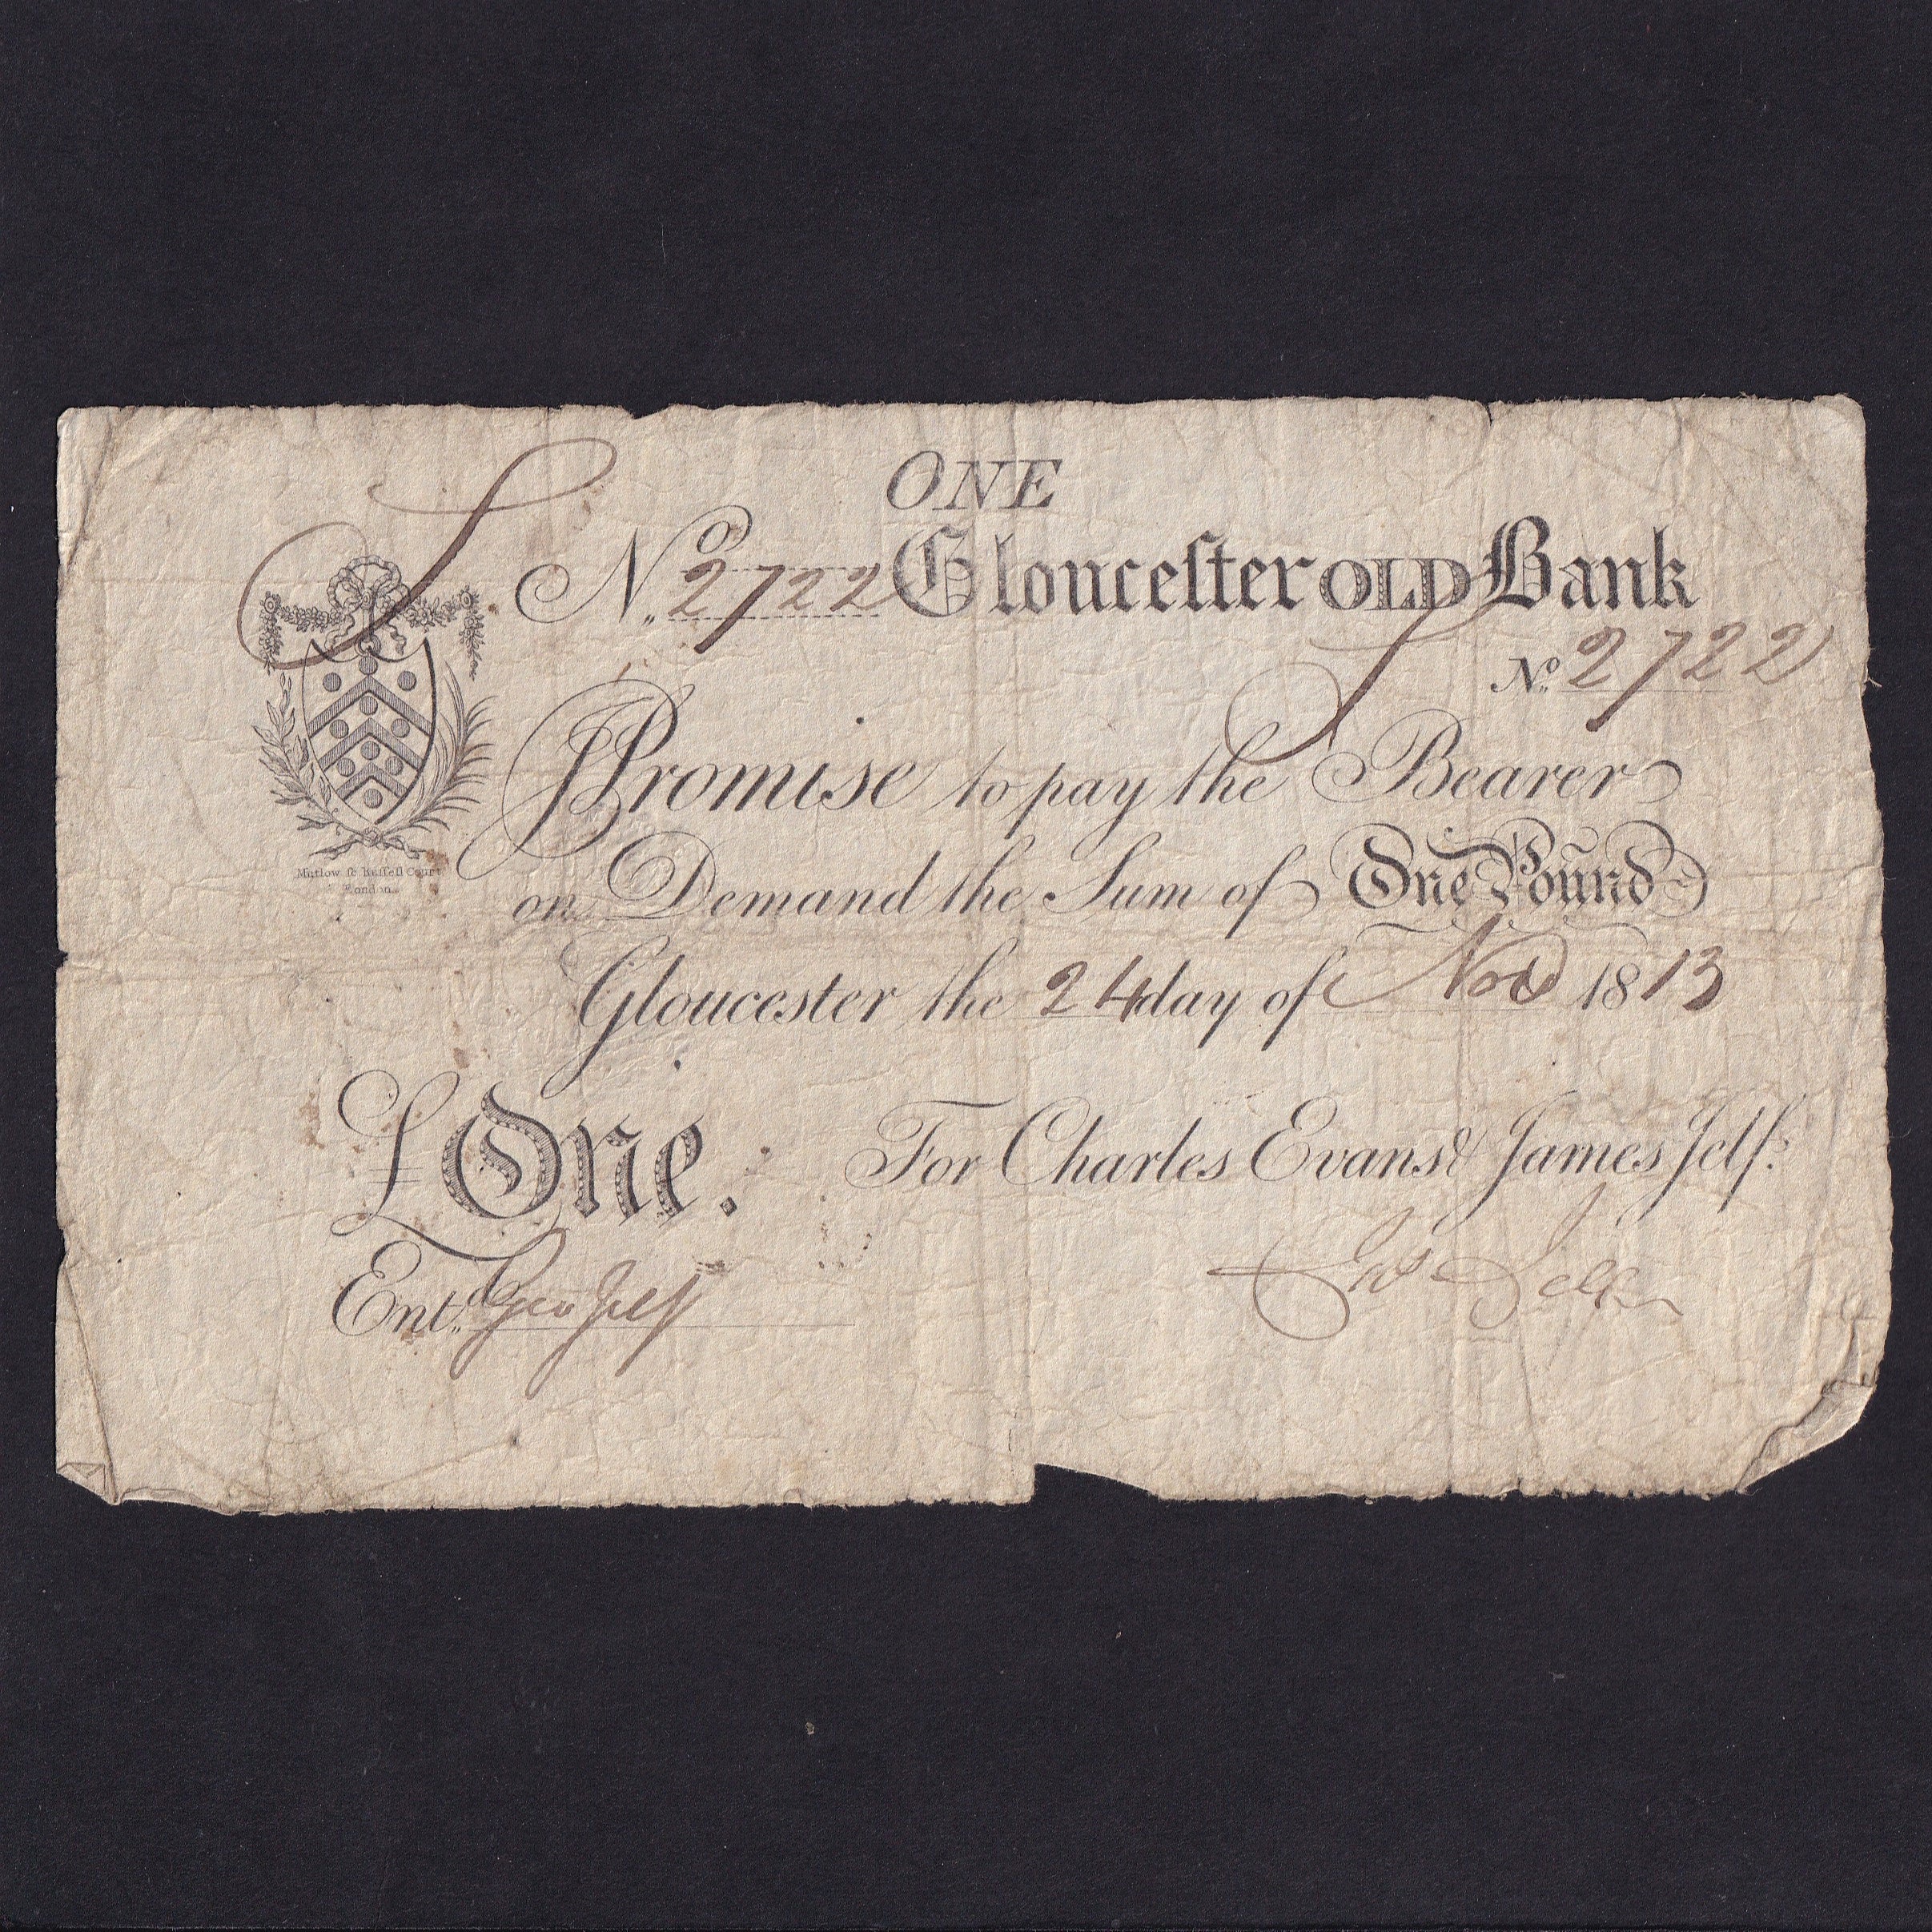 ONE
Nº 2722 Glouceſter OLD Bank
Nº 2722
I Promise to pay the Bearer
on Demand the Sum of One Pound
Gloucester the 24 day of Nov 1813
£One. For Charles Evans & James Jelf.
Entd. Geo Jelf
Jas Jelf
Mutlow ſc Ruſſell Court
London